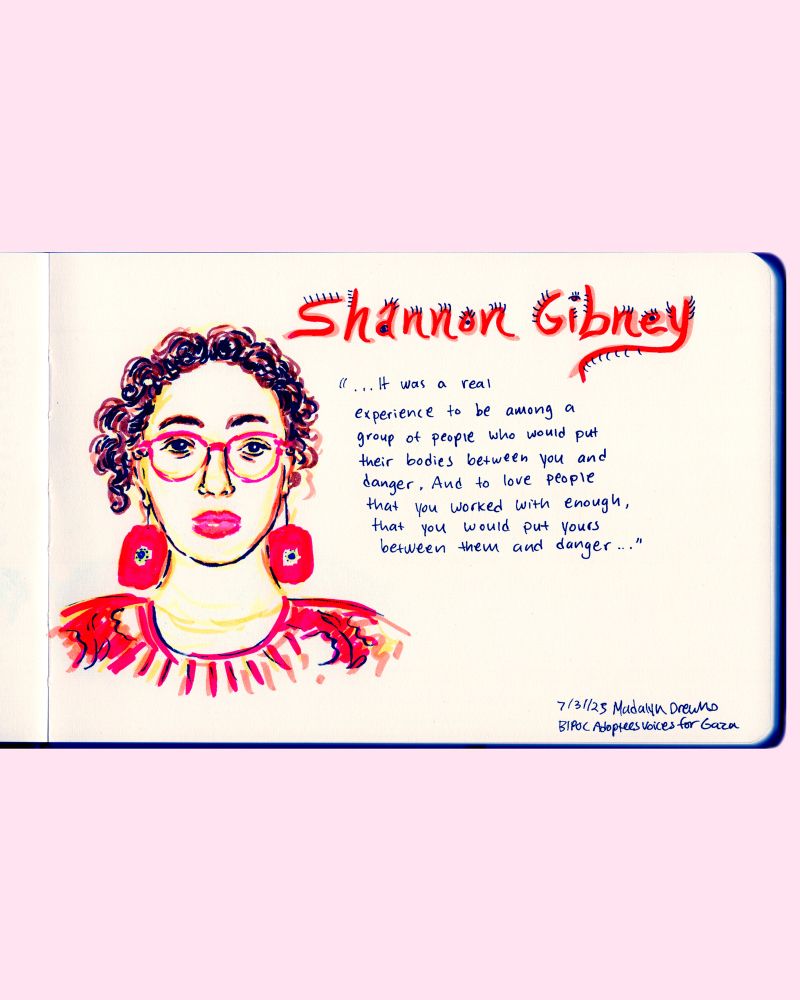 Shannon Gibney
"...It was a real
experience to be among a
group of people who would put
their bodies between you and
danger. And to love people
that you worked with enough,
that you would put yours
between them and danger..."
7/31/25 Madalyn Drewno
BIPOC Adoptees Voices for Gaza